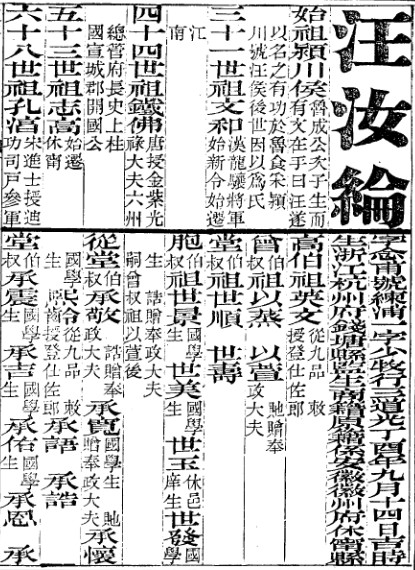 汪汝綸
始祖潁川侯魯成公次子生而
有文在手曰汪遂
以名之有功於魯食采潁
川號汪侯後世因以爲氏
三十一世祖文和漢龍驤將軍
始新令始遷
江
南
四十四世祖鐵佛唐授金紫光
祿大夫六州
總管府長史上柱
國宣城郡開國公
五十三世祖志高始遷
休甯
六十八世祖孔宋進士授迪
功司戶參軍
字念甫號練浦一字少牧行三道光丁酉年九月十四日吉時
生浙江杭州府錢塘縣監生商籍原籍係安徽徽州府休甯縣
高伯祖英文從九品 敕
授登仕佐郎
曾伯叔祖以蒸 以萱貤贈奉
政大夫
堂伯叔祖世順 世壽
胞伯叔祖世景國學生 世美國學生 世玉休邑庠生 世發國學
生 誥贈奉政大夫
嗣曾叔祖以萱後
從堂伯叔承敬誥贈奉政大夫 承寬國學生 貤贈奉政大夫 承懷
國學生 從九品 敕授登仕佐郎 承語 承誥
堂伯叔承震國學生 承吉國學生 承佑國學生 承恩 承